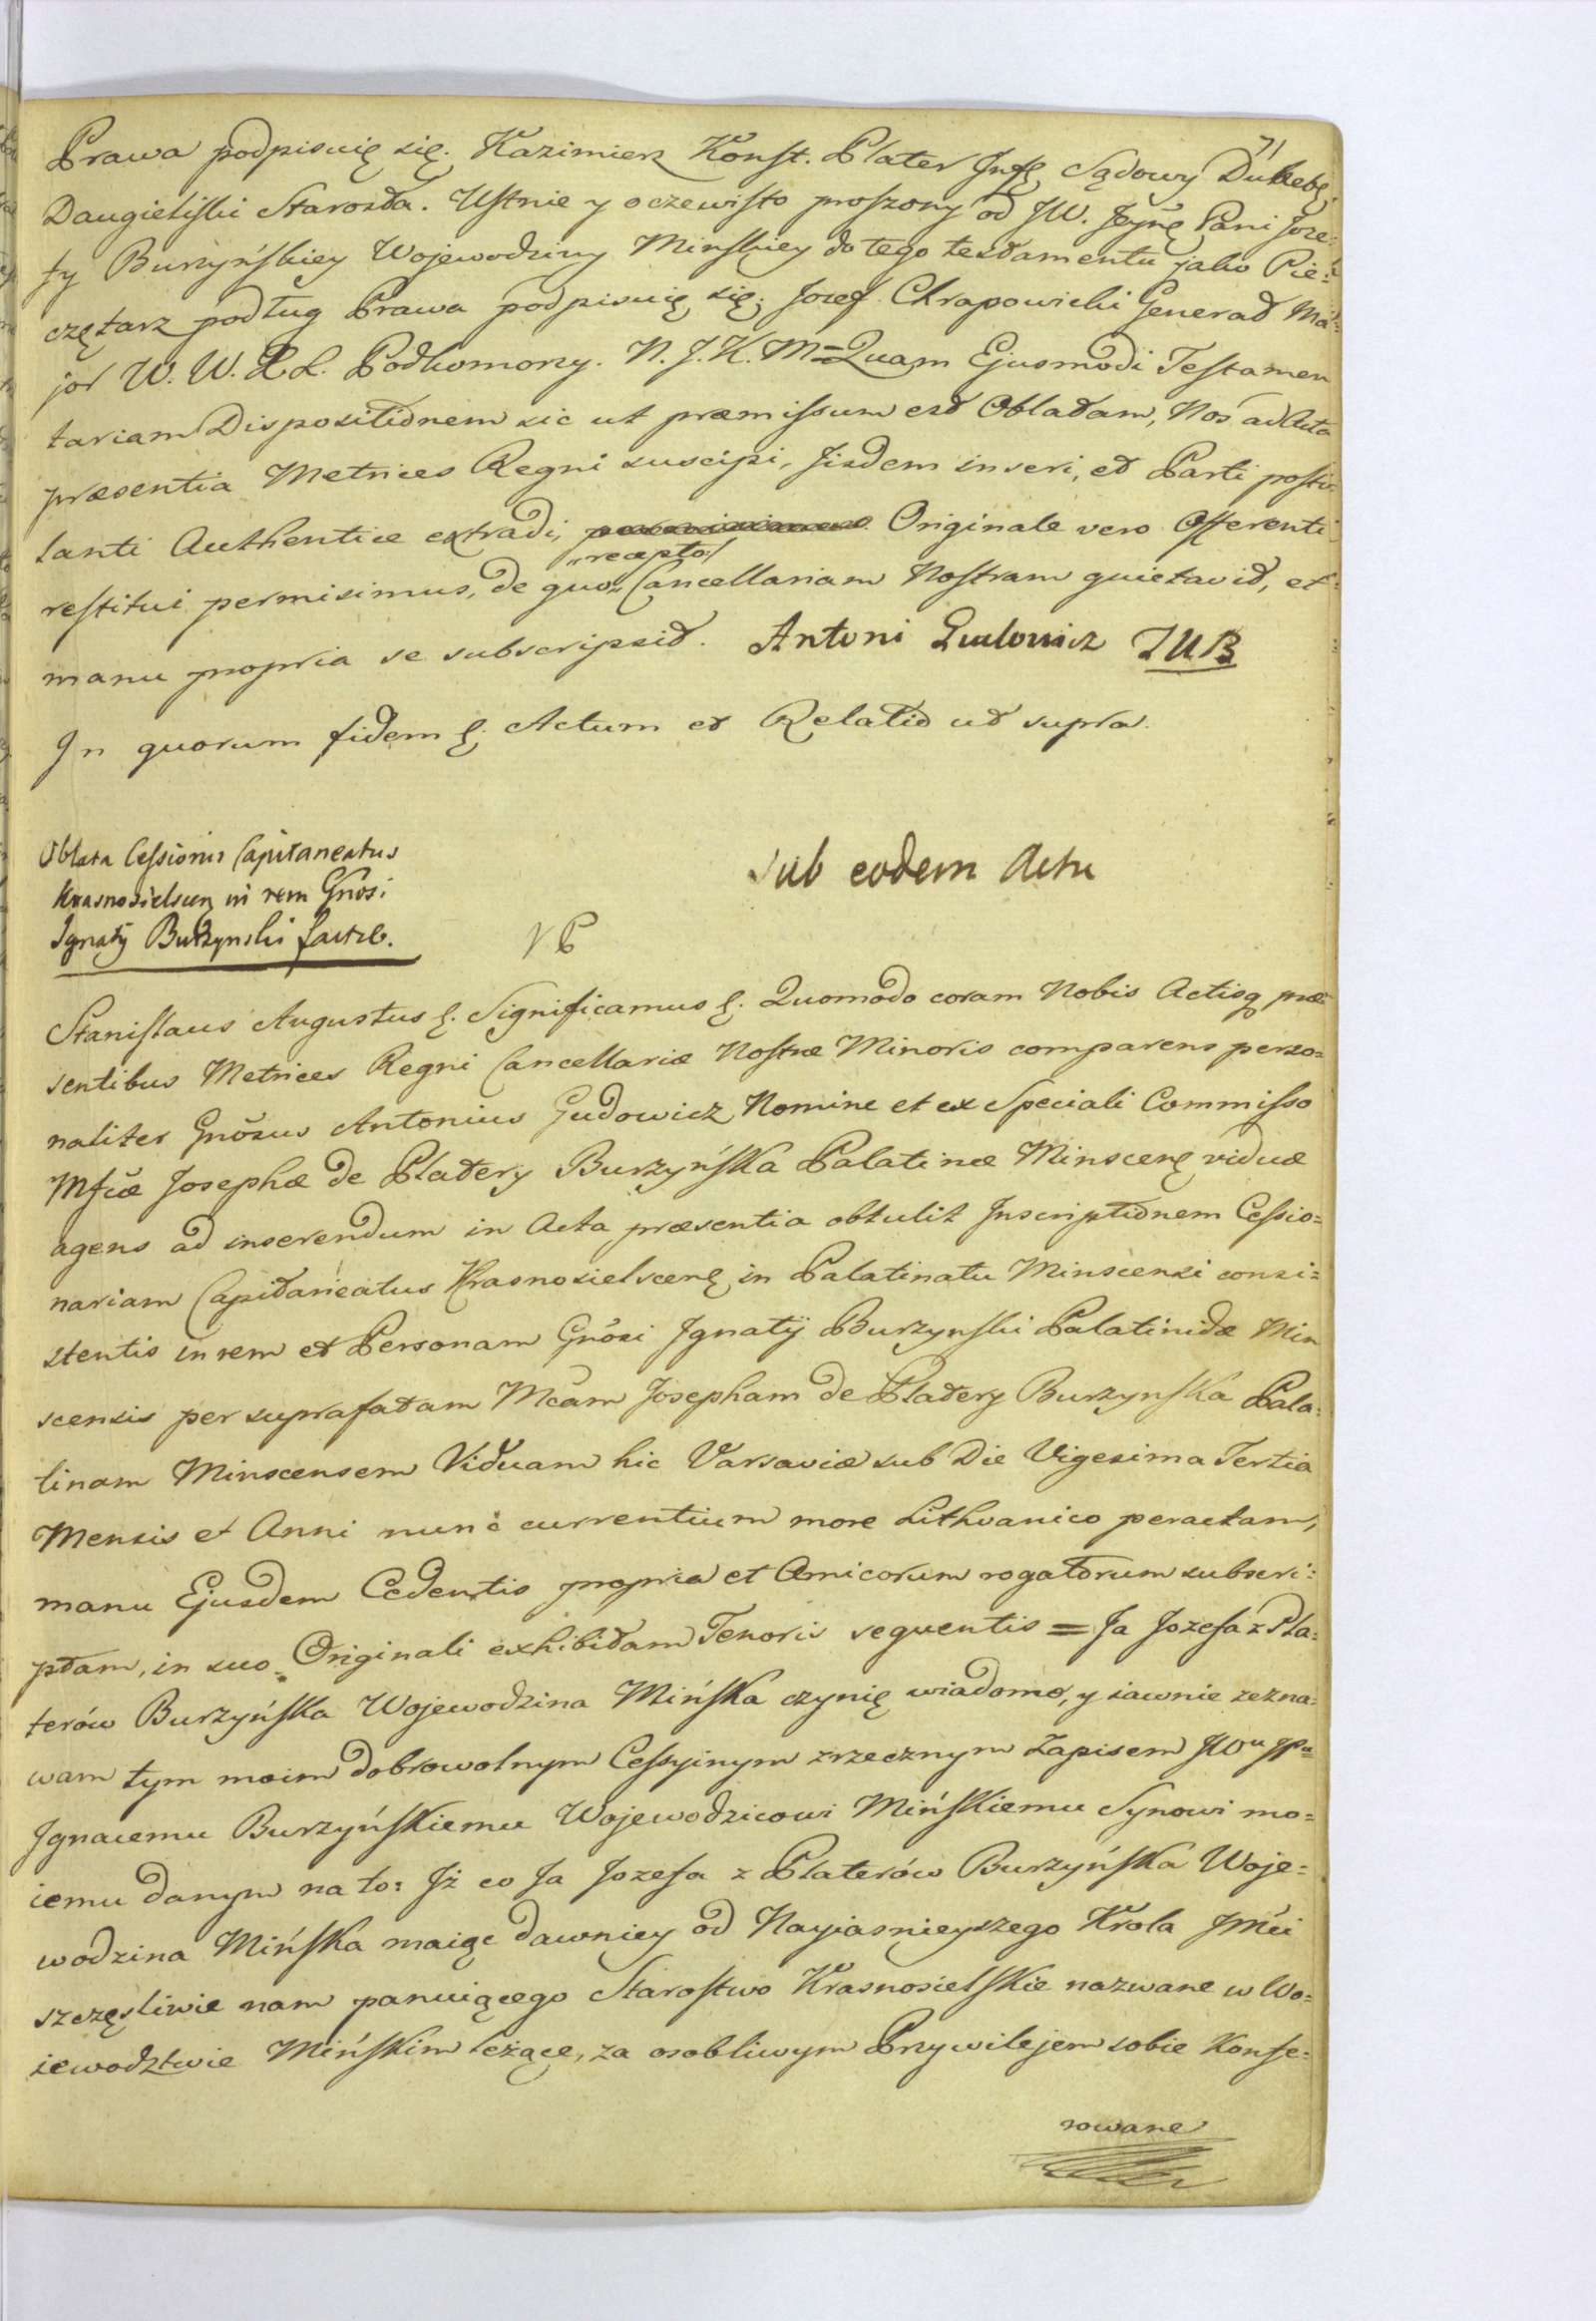 71
Prawa podpisuię się. Kazimierz Konst. Plater Sądowy
Daugieliski Starosta. Ustnie y oczewisto proszony od JW. Jeynę Pani Joze:
fy Burzyńskiey Wojewodziny Minskiey do tego testamentu jako Pie:
czętarz podług Prawa podpisuię się. Jozef Chrapowicki Generał Ma:
jor W. W. X. L. Podkomorzy. N. J. K. M = Quam Ejusmodi Testamen
tariam Dispositionem sic ut præmissum est Oblatam, Nos ad Acta
præsentia Metrices Regni suscipi, Jisdem inseri, et Parti postu:
lanti Authentice extradi, Originale vero Offerenti
restitui permisimus, de quo recepto Cancellariam Nostram quietavit, et
manu propria se subscripsit. Antoni Gudowicz
In quorum fidem &. Actum et Relatio ut supra.
Oblata Cessionis Capitaneatus
Krasnosielscen in rem Gnosi
Ignatij Burzynski factæ.
Sub eodem Actu
Stanislaus Augustus &. Significamus &. Quomodo coram Nobis Actisq præ
sentibus Metrices Regni Cancellariæ Nostræ Minoris comparens perso=
naliter Gnosus Antonius Gudowicz Nomine et ex Speciali Commisso
Mfcæ Josephæ de Platery Burzyńska Palatinæ Minscenę viduæ
agens ad inserendum in Acta præsentia obtulit Inscriptionem Cessio=
nariam Capitaneatus Krasnosielscenę in Palatinatu Minscensi consi=
stentis in rem et Personam Gnosi Ignatij Burzynski Palatinidæ Min
scensis per suprafatam Mcam Josepham de Platery Burzynska Pala:
tinam Minscensem Viduam hic Varsaviæ sub Die Vigesima Tertia
Mensis et Anni nunc currentium more Lithvanico peractam,
manu Ejusdem Cedentis propria et Amicorum rogatorum subscri:
ptam, in suo Originali exhibitam Tenoris sequentis = Ja Jozefa z Pla:
terów Burzyńska Wojewodzina Mińska czynię wiadomo, y iawnie zezna:
wam tym moim dobrowolnym Cessyinym zrzecznym Zapisem JWu JPu
Ignacemu Burzyńskiemu Wojewodzicowi Mińskiemu Synowi mo=
iemu danym na to: Jż co Ja Jozefa z Platerów Burzyńska Woje=
wodzina Mińska maiąc dawniey od Nayjasnieyszego Krola Jmći
szczęsliwie nam panuiącego Starostwo Krasnosielskie nazwane w Wo=
iewodztwie Mińskim leżące, za osobliwym Przywilejem sobie Konfe=
rowane